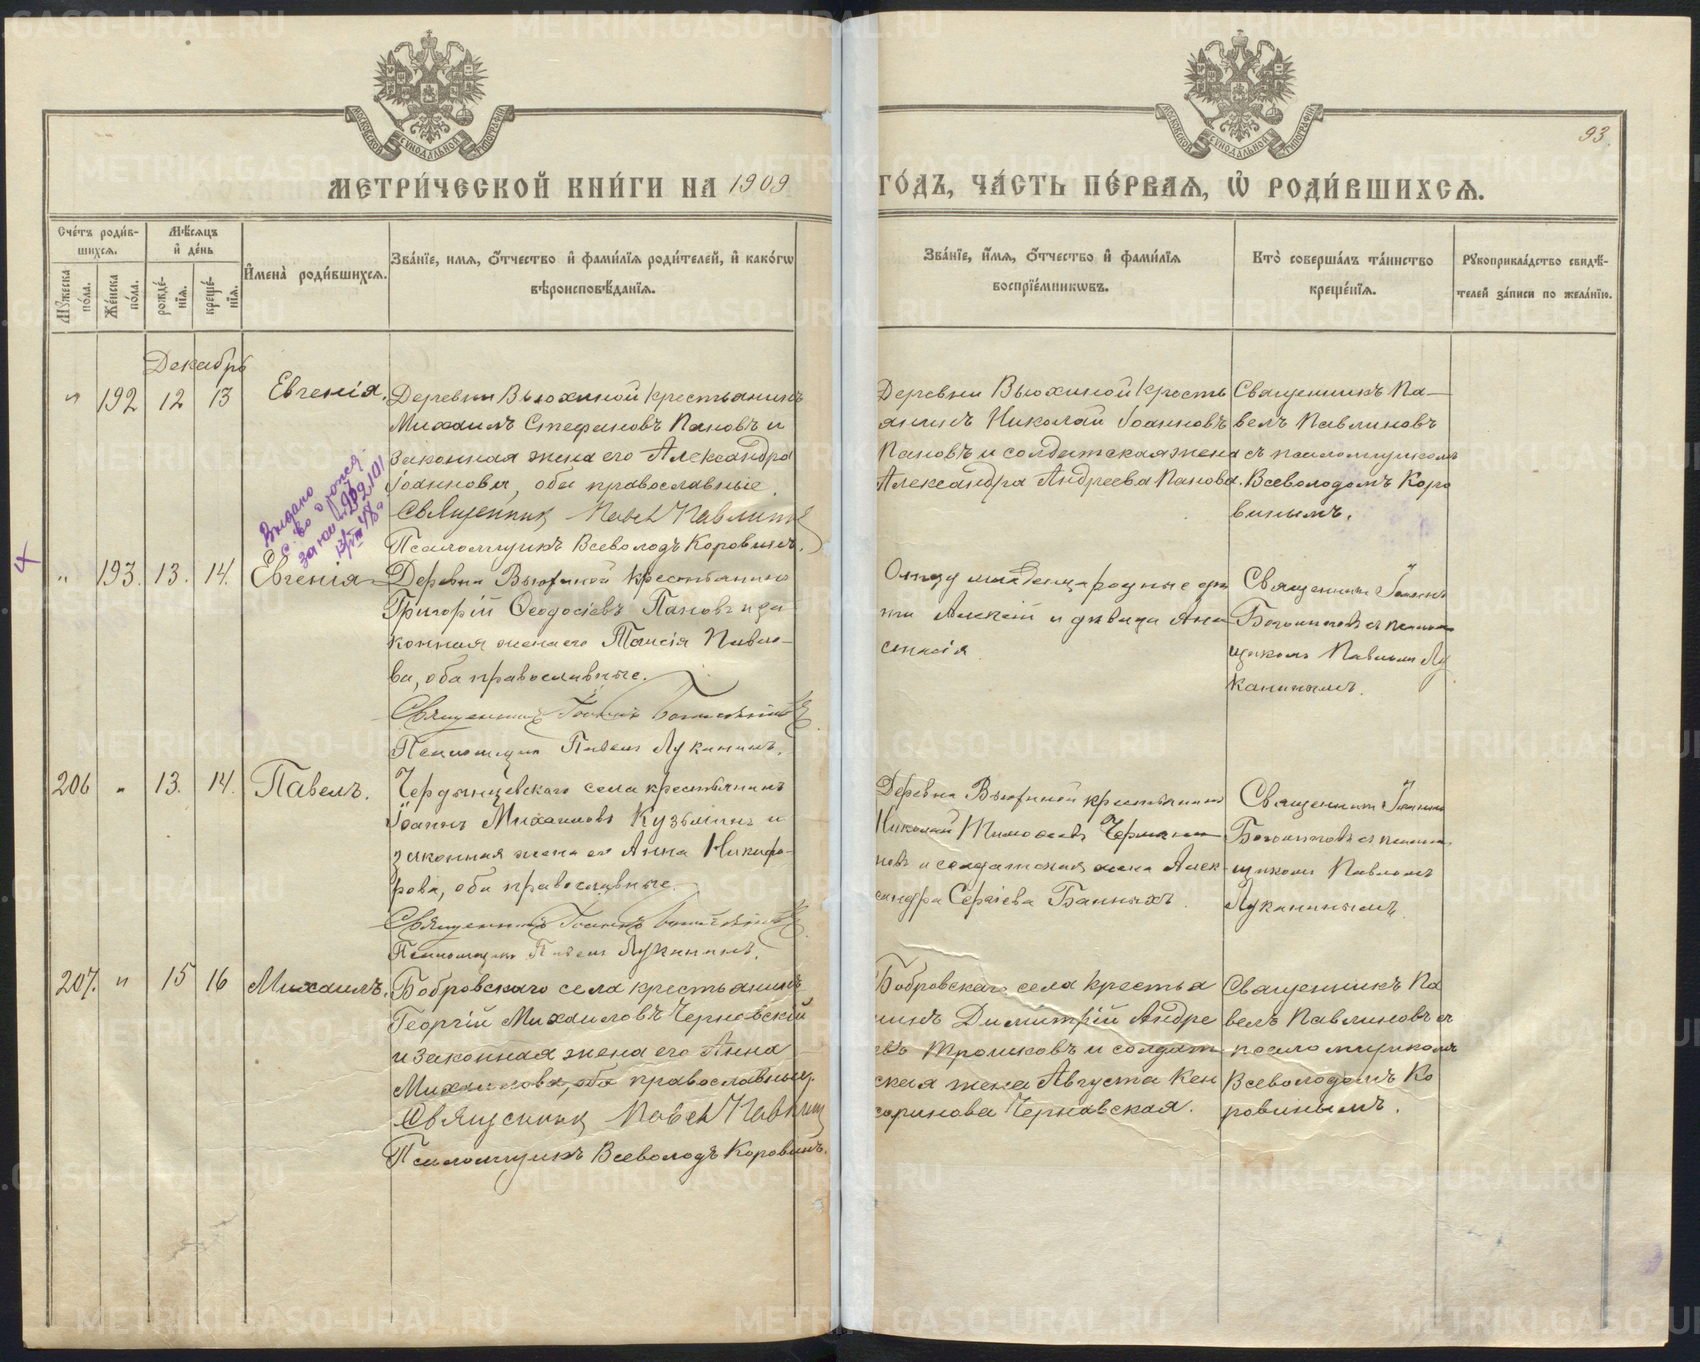 МЕТРИ́ЧЕСКОЙ КНИ́ГИ НА 1909
ГО́ДЪ, ЧА́СТЬ ПЕ́РВАЯ, Ѽ РОДИ́ВШИХСЯ.
93
Сче́тъ роди́в-
шихся.
Мѣ́сяцъ
и де́нь
Мꙋ́жеска по́ла.
Же́нска по́ла.
рожде́-
нїя.
креще́-
нїя.
И҆мена̀ роди́вшихся.
Зва́нїе, имя, ѻ҆́тчество и҆ фами́лїя роди́телей, и҆ како́гѡ
вѣроисповѣ́данїя.
Зва́нїе, и҆́мя, ѻ҆́тчество и҆ фами́лїя
воспрїе́мникѡвъ.
Кто̀ соверша́лъ та́инство
креще́нїя.
Рꙋкоприкла́дство свидѣ́-
телей за́писи по жела́нїю.
Декабрь
" 192 12 13 Евгенія.
Деревни Вьюхиной крестьянинъ
Михаилъ Стефановъ Пановъ и
законная жена его Александра
Іоаннова, оба православные.
Священникъ Павел Павлинов
Псаломщикъ Всеволодъ Коровинъ.
Деревни Вьюхиной кресть
янинъ Николай Іоанновъ
Пановъ и солдатская жена
Александра Андреева Панова.
Священникъ Па-
велъ Павлиновъ
съ псаломщикомъ
Всеволодомъ Коро
винымъ.
Выдано
с-во о рожд.
" 193. 13. 14. Евгенія
Деревни Вьюхиной крестьянинъ
Григорій Ѳеодосіевъ Пановъ и за
конная жена его Таисія Павло-
ва, оба православные.
Священникъ Іоаннъ
Псаломщикъ Павелъ Луканинъ.
Алексій и дѣвица Ана
стасія
Священникъ Іоаннъ
щикомъ Павломъ Лу
канинымъ.
206 " 13. 14. Павелъ.
Чердынцевскаго села крестьянинъ
Іоаннъ Михаиловъ Кузьминъ и
законная жена его Анна Никифо-
рова, оба православные.
Священникъ Іоаннъ
Псаломщикъ Павелъ Луканинъ.
Деревни Вьюхиной крестьянинъ
Николай Тимоѳеевъ
новъ и солдатская жена Алек
сандра Сергіева Банныхъ.
Священникъ Іоаннъ
щикомъ Павломъ
Луканинымъ.
207. " 15 16 Михаилъ.
Бобровскаго села крестьянинъ
Георгій Михаиловъ Чернавскій
и законная жена его Анна
Михаилова, оба православные.
Священникъ Павел Павлинов
Псаломщикъ Всеволодъ Коровинъ.
Бобровскаго села крестья
нинъ Димитрій Андре
евъ Трошковъ и солдат
ская жена Августа Кен
соринова Чернавская.
Священникъ Па
велъ Павлиновъ съ
псаломщикомъ
Всеволодомъ Ко
ровинымъ.
METRIKI.GASO-URAL.RU